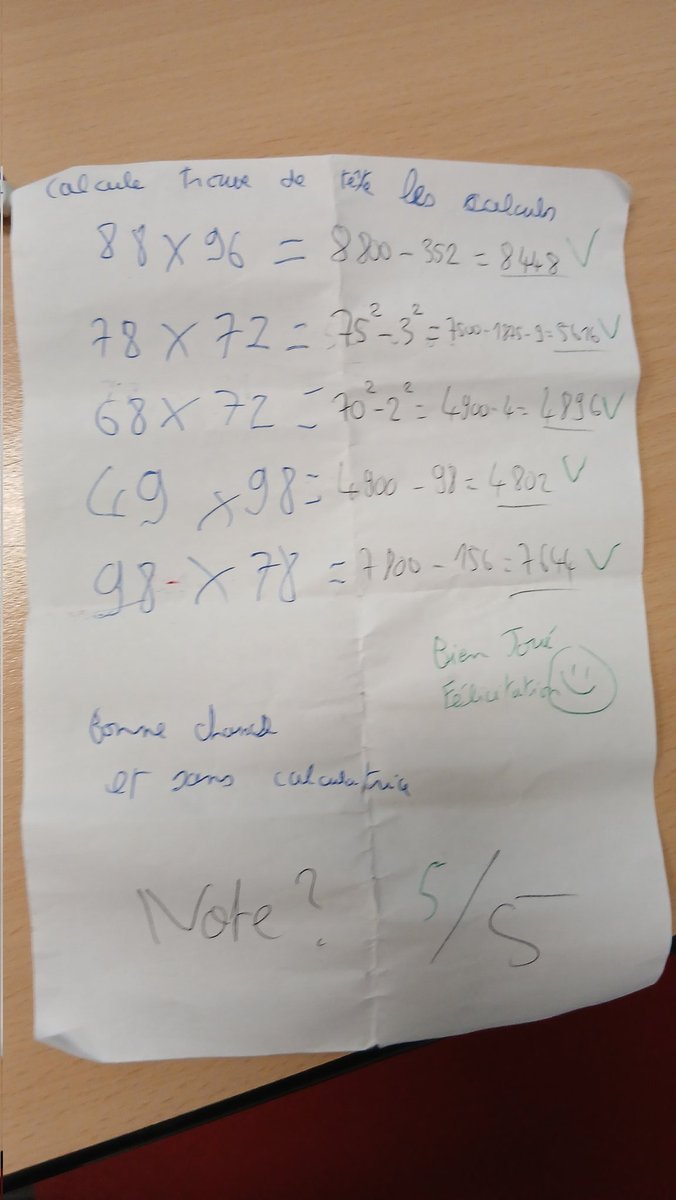 Calcule trouve de tête les calculs
88 × 96 = 8800 - 352 = 8448 V
78 × 72 = 75² - 3² = 7500 - 1875 - 9 = 5616 V
68 × 72 = 70² - 2² = 4900 - 4 = 4896 V
49 × 98 = 4900 - 98 = 4802 V
98 × 78 = 7800 - 156 = 7644 V
Bien Joué
Félicitation
Bonne chance
et sans calculatrice
Note? 5/5